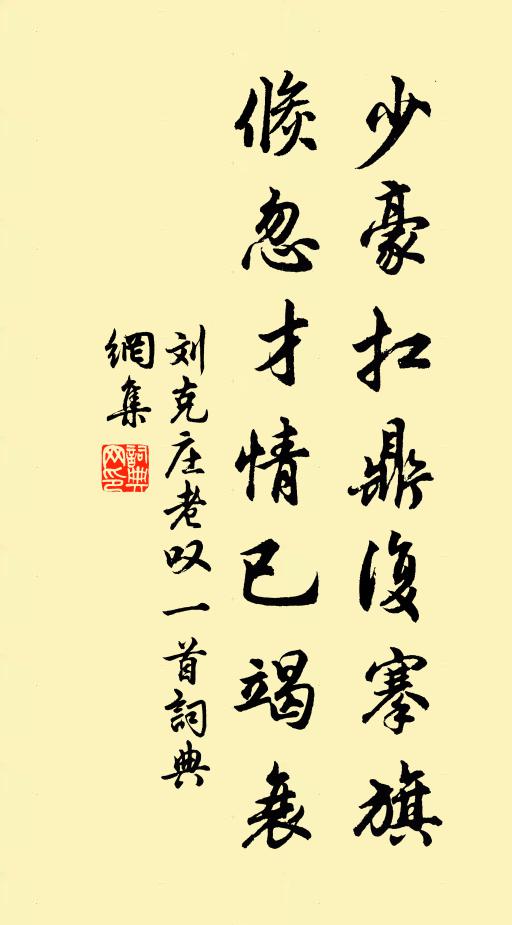 少豪扛鼎復搴旗
倐忽才情已竭衰
刘克庄老叹一首詞典
網集
詞典
网印